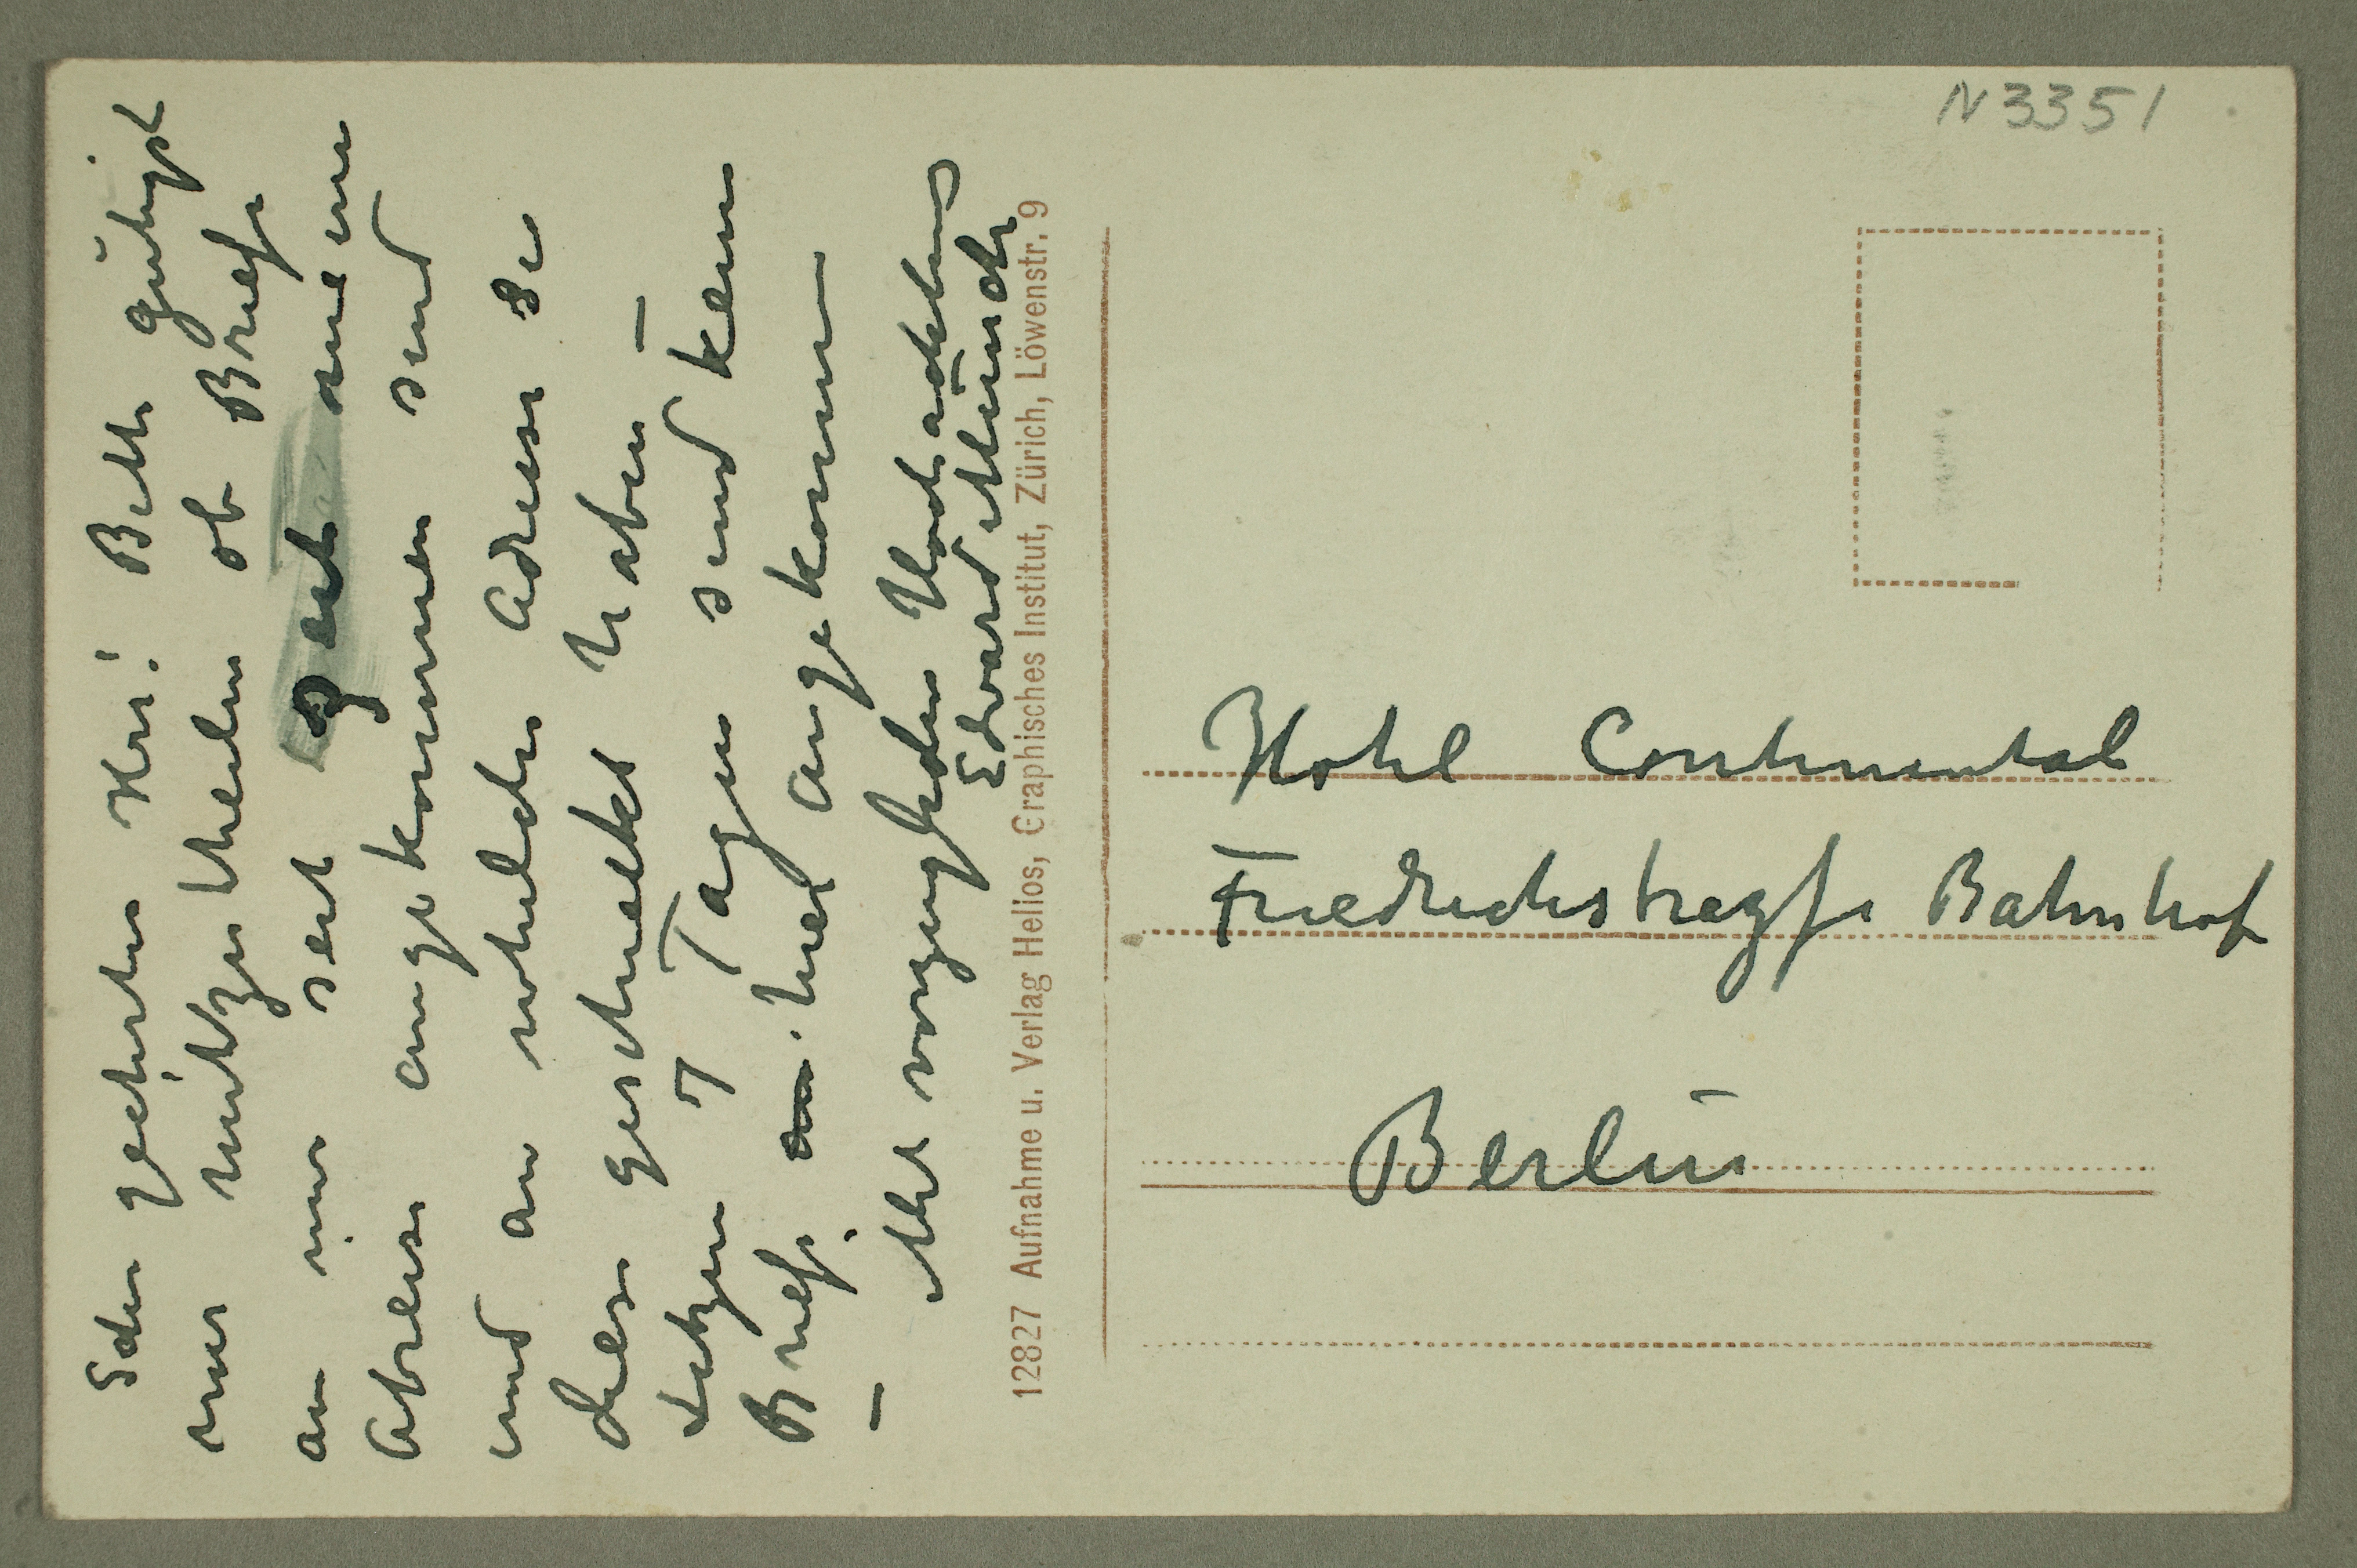 N 3351
Sehr geehrter Herr! Bitte gütigst
mir mitzutheilen ob Briefe
an mir seit meine
Abreise angekommen sind
und an welcher Adresse Sie
diese geschickt haben –
Letzten 7 Tagen sind kein
Briefe hier angekommen
– Mit vorzüglichen Hochachtung
Edvard Munch
12827 Aufnahme u. Verlag Helios, Graphisches Institut, Zürich, Löwenstr. 9
Hotel Continental
Friedrichstrasse Bahnhof
Berlin